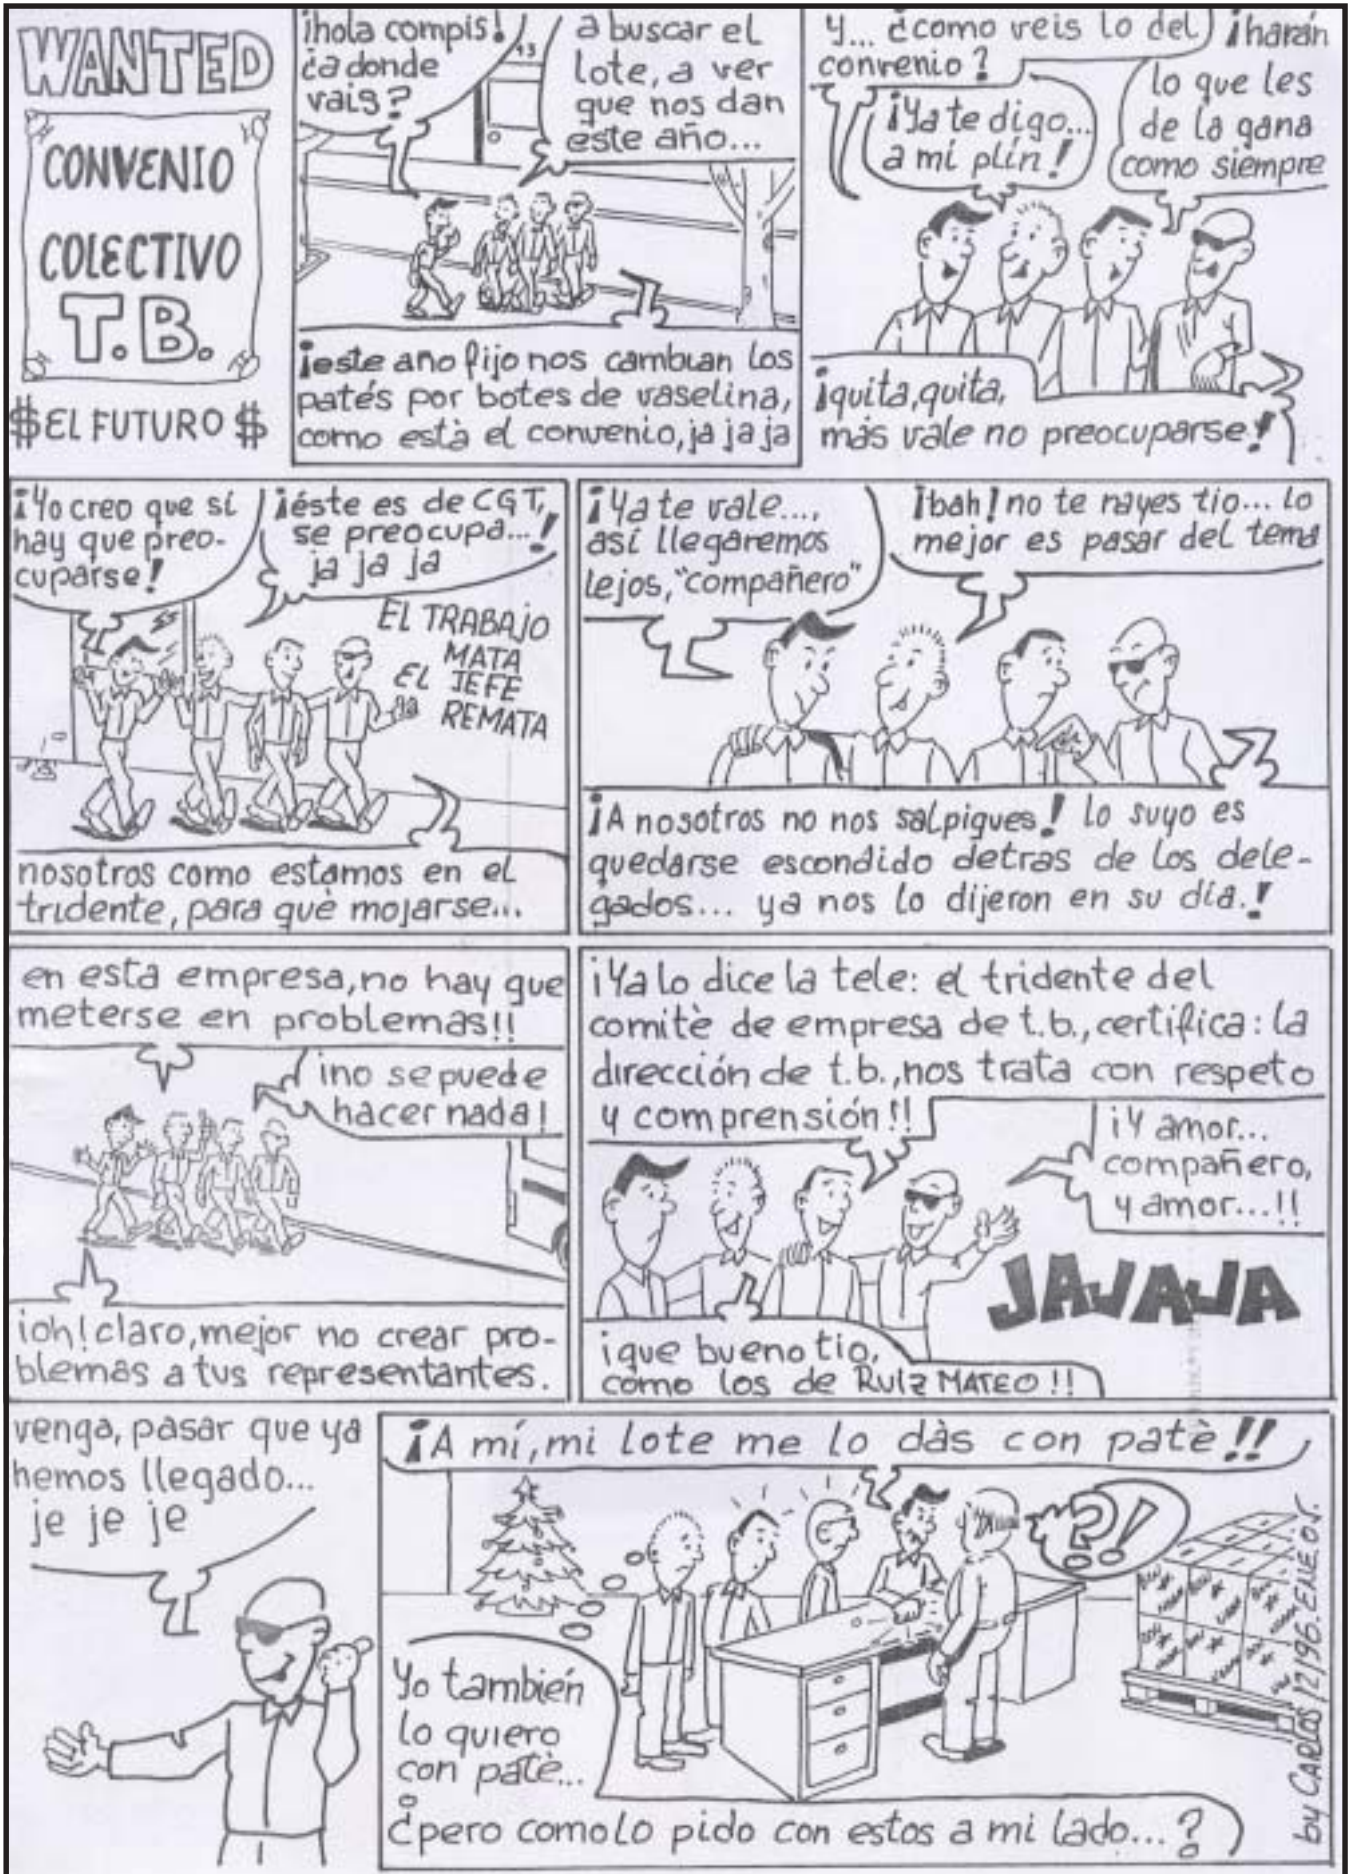 WANTED
CONVENIO
COLECTIVO
T.B.
$ EL FUTURO $
¡hola compis!
¿a donde
vais?
a buscar el
lote, a ver
que nos dan
este año...
¡este año fijo nos cambian los
patés por botes de vaselina,
como està el convenio, ja ja ja
y... ¿como veis lo del
convenio?
¡Ya te digo...
a mi plín!
¡harán
lo que les
de la gana
como siempre
¡quita, quita,
más vale no preocuparse!
¡Yo creo que sí
hay que preo-
cuparse!
¡éste es de CGT,
se preocupa...!
ja ja ja
EL TRABAJO
MATA
EL JEFE
REMATA
nosotros como estamos en el
tridente, para què mojarse...
¡Ya te vale...,
así llegaremos
lejos, "compañero"
¡bah! no te rayes tio... lo
mejor es pasar del tema
¡A nosotros no nos salpigues! lo suyo es
quedarse escondido detras de los dele-
gados... ya nos lo dijeron en su día.!
en esta empresa, no hay que
meterse en problemas!!
¡no se puede
hacer nada!
¡oh! claro, mejor no crear pro-
blemas a tus representantes.
¡Ya lo dice la tele: el tridente del
comitè de empresa de t.b., certifica: la
dirección de t.b., nos trata con respeto
y comprensión!!
¡Y amor...
compañero,
y amor...!!
JAJAJA
¡que bueno tio,
como los de Ruiz MATEO!!
venga, pasar que ya
hemos llegado...
je je je
¡A mí, mi lote me lo dàs con patè!!
?!
Yo también
lo quiero
con patè...
¿pero como lo pido con estos a mi lado...?
by CARLOS 12/96. ENE.05.